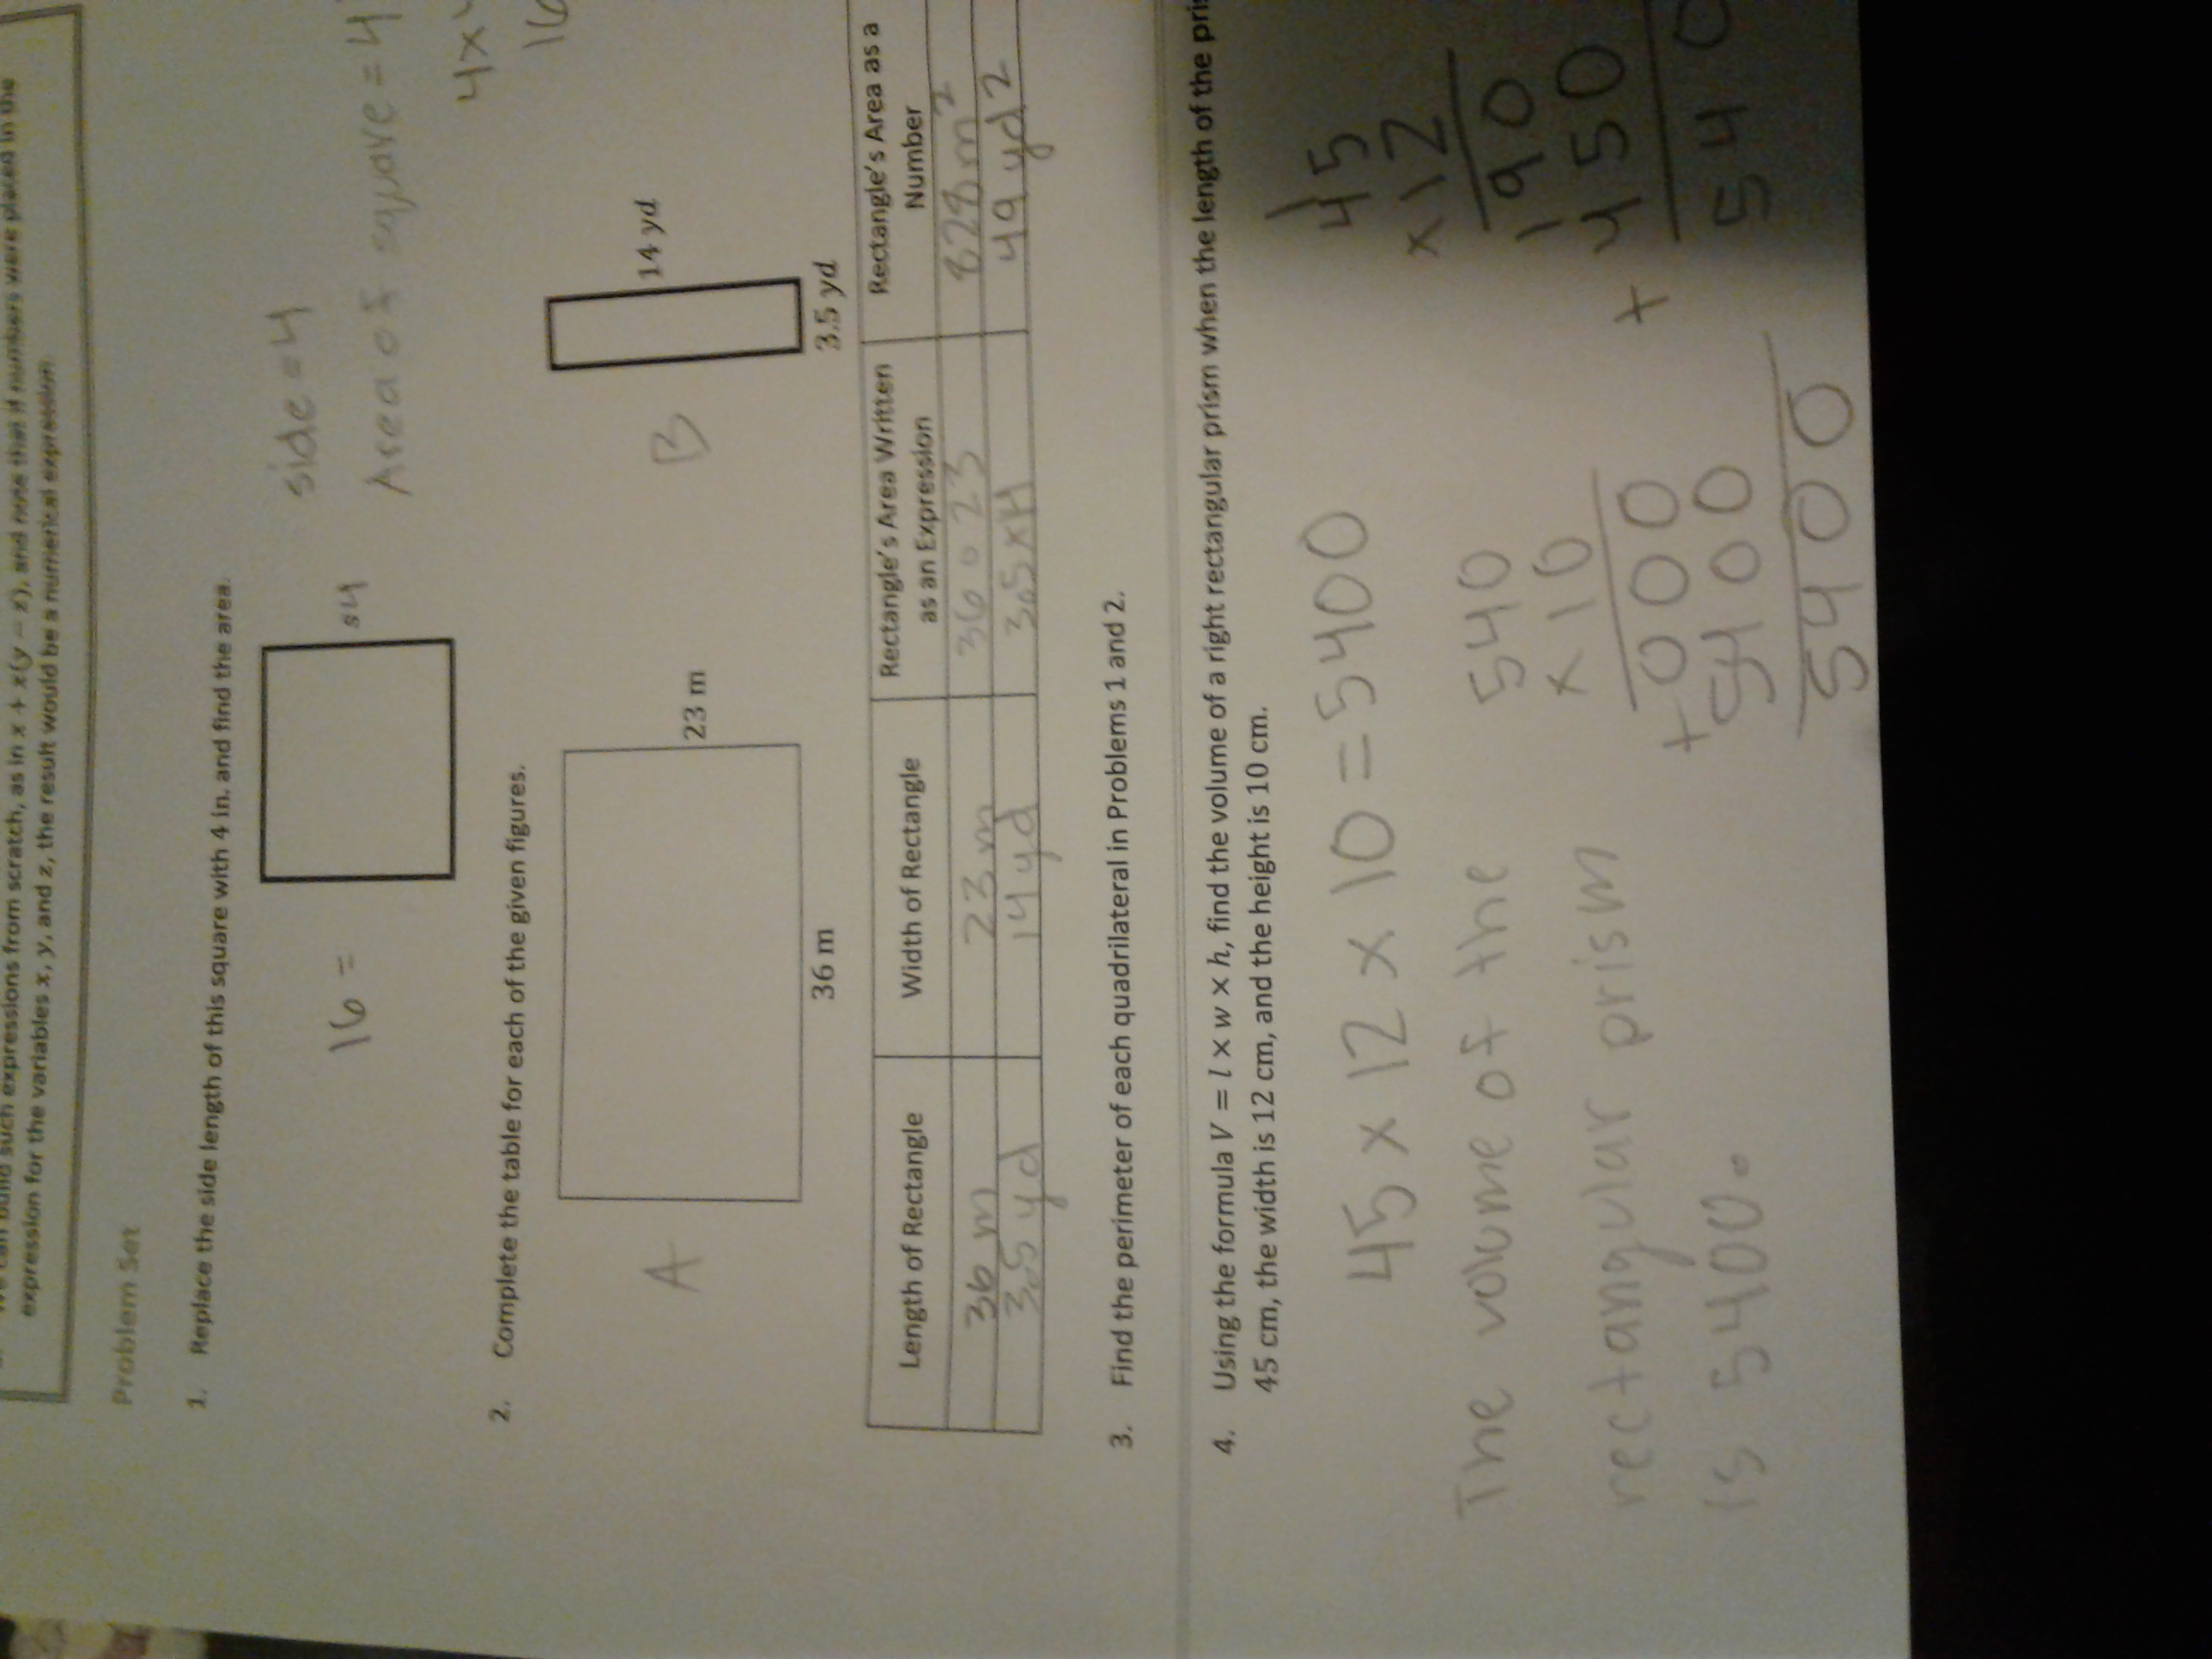 such expressions from scratch, as in x + x(y − z), and note that if numbers were placed in the
expression for the variables x, y, and z, the result would be a numerical expression
Problem Set
1. Replace the side length of this square with 4 in. and find the area.
16 =
s4
side = 4
Area of square = 4
4x
16
2. Complete the table for each of the given figures.
A
23 m
36 m
B
14 yd
3.5 yd
Length of Rectangle
Width of Rectangle
Rectangle's Area Written as an Expression
Rectangle's Area as a Number
36 m
23 m
36 ∘ 23
828 m²
3.5 yd
14 yd
49 yd2
3. Find the perimeter of each quadrilateral in Problems 1 and 2.
4. Using the formula V = l × w × h, find the volume of a right rectangular prism when the length of the
45 cm, the width is 12 cm, and the height is 10 cm.
45 x 12 x 10 = 5400
The volume of the
rectangular prism
is 5400.
540
x 10
000
+ 5400
5400
1
45
x 12
190
+ 450
540